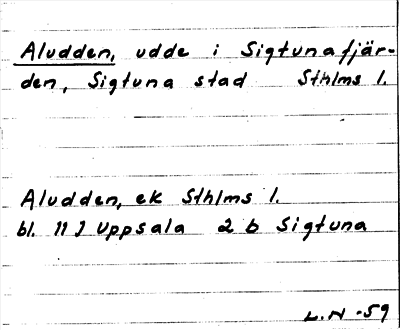 Aludden, udde i Sigtunafjär-
den, Sigtuna stad Sthlms l.
Aludden, ek Sthlms l.
bl. 11 I Uppsala 2 b Sigtuna
L.N -59